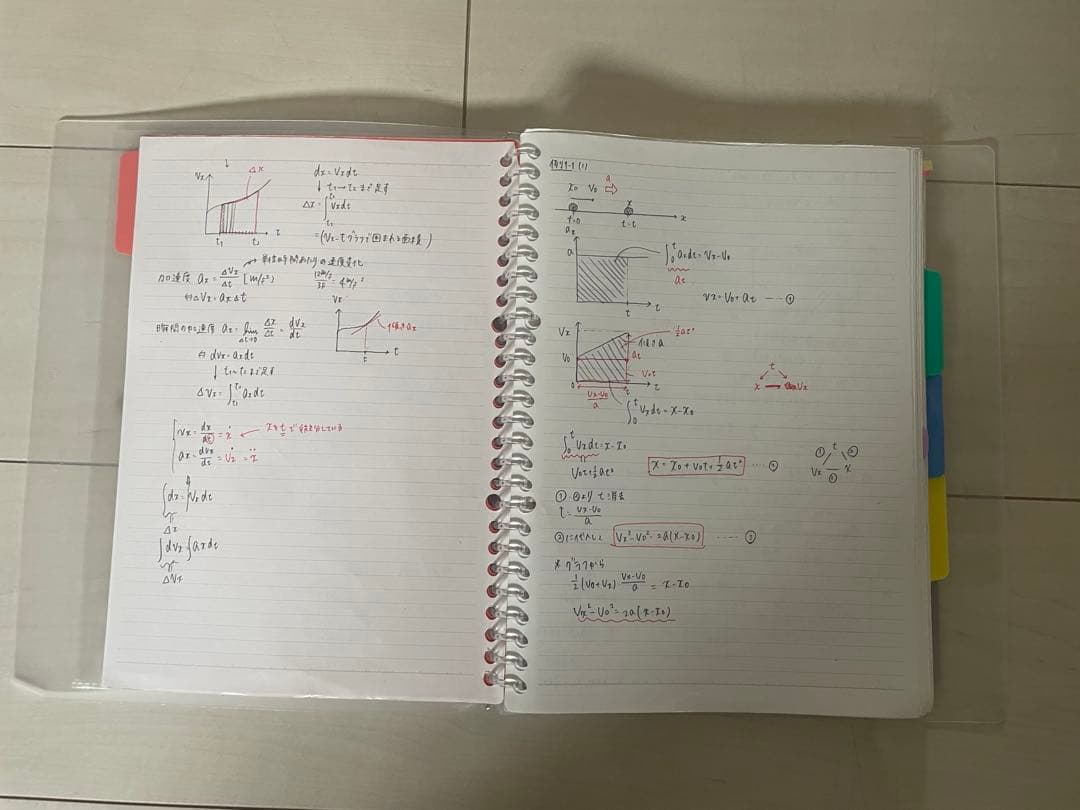 Vx
Δx
t
t₁
t₂
dx = Vx dt
↓ t₁→t₂まで足す
Δx = ∫[t₁→t₂] Vx dt
= (Vx-tグラフで囲まれる面積)
単位時間あたりの速度変化
加速度 ax = ΔVx/Δt [m/s²]
12m/s / 3s = 4m/s²
⇔ ΔVx = ax Δt
瞬間の加速度 ax = lim Δt→0 Δx/Δt = dVx/dt
Vx
傾き ax
t
t
⇔ dVx = ax dt
↓ t₁→t₂まで足す
ΔVx = ∫[t₁→t₂] ax dt
Vx = dx/dt = ẋ ← xをtで
ax = dVx/dt = V̇x = ẍ
∫dx = ∫Vx dt
Δx
∫dVx = ∫ax dt
ΔVx
例題1-1 (1)
a
x₀ V₀ ⇨
x
t=0
t=t
x
ax
a
∫[0→t] ax dt = Vx-V₀
at
t
t
Vx = V₀ + at ---- ①
Vx
½at²
傾きa
V₀
at
V₀t
0
t
t
Vx-V₀/a
∫[0→t] Vx dt = x-x₀
t
x
Vx
∫[0→t] Vx dt = x-x₀
V₀t+½at²
x = x₀ + V₀t + ½at² ---- ②
① t ②
Vx x
③
①、②より t 消去
t = Vx-V₀/a
②に代入して Vx²-V₀² = 2a(x-x₀) ---- ③
※ グラフから
½(V₀+Vx) Vx-V₀/a = x-x₀
Vx²-V₀² = 2a(x-x₀)